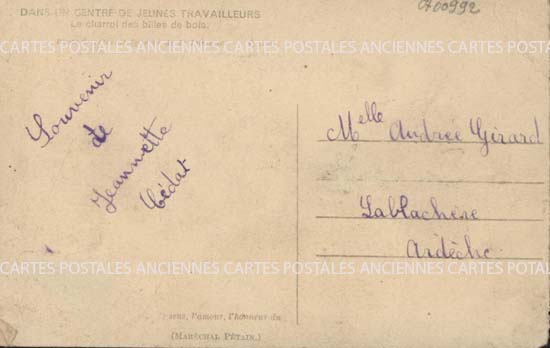 DANS UN CENTRE DE JEUNES TRAVAILLEURS
Le charroi des billes de bois.
A00992
CARTES POSTALES ANCIENNES CARTES POSTALES ANCIENNES CARTES POSTALES
Souvenir
de
Jeannette
Cédat
Melle Andrée Girard
Lablachère
Ardèche
CARTES POSTALES ANCIENNES CARTES POSTALES ANCIENNES CARTES POSTALES
l'amour, l'honneur du
(MARÉCHAL PÉTAIN.)